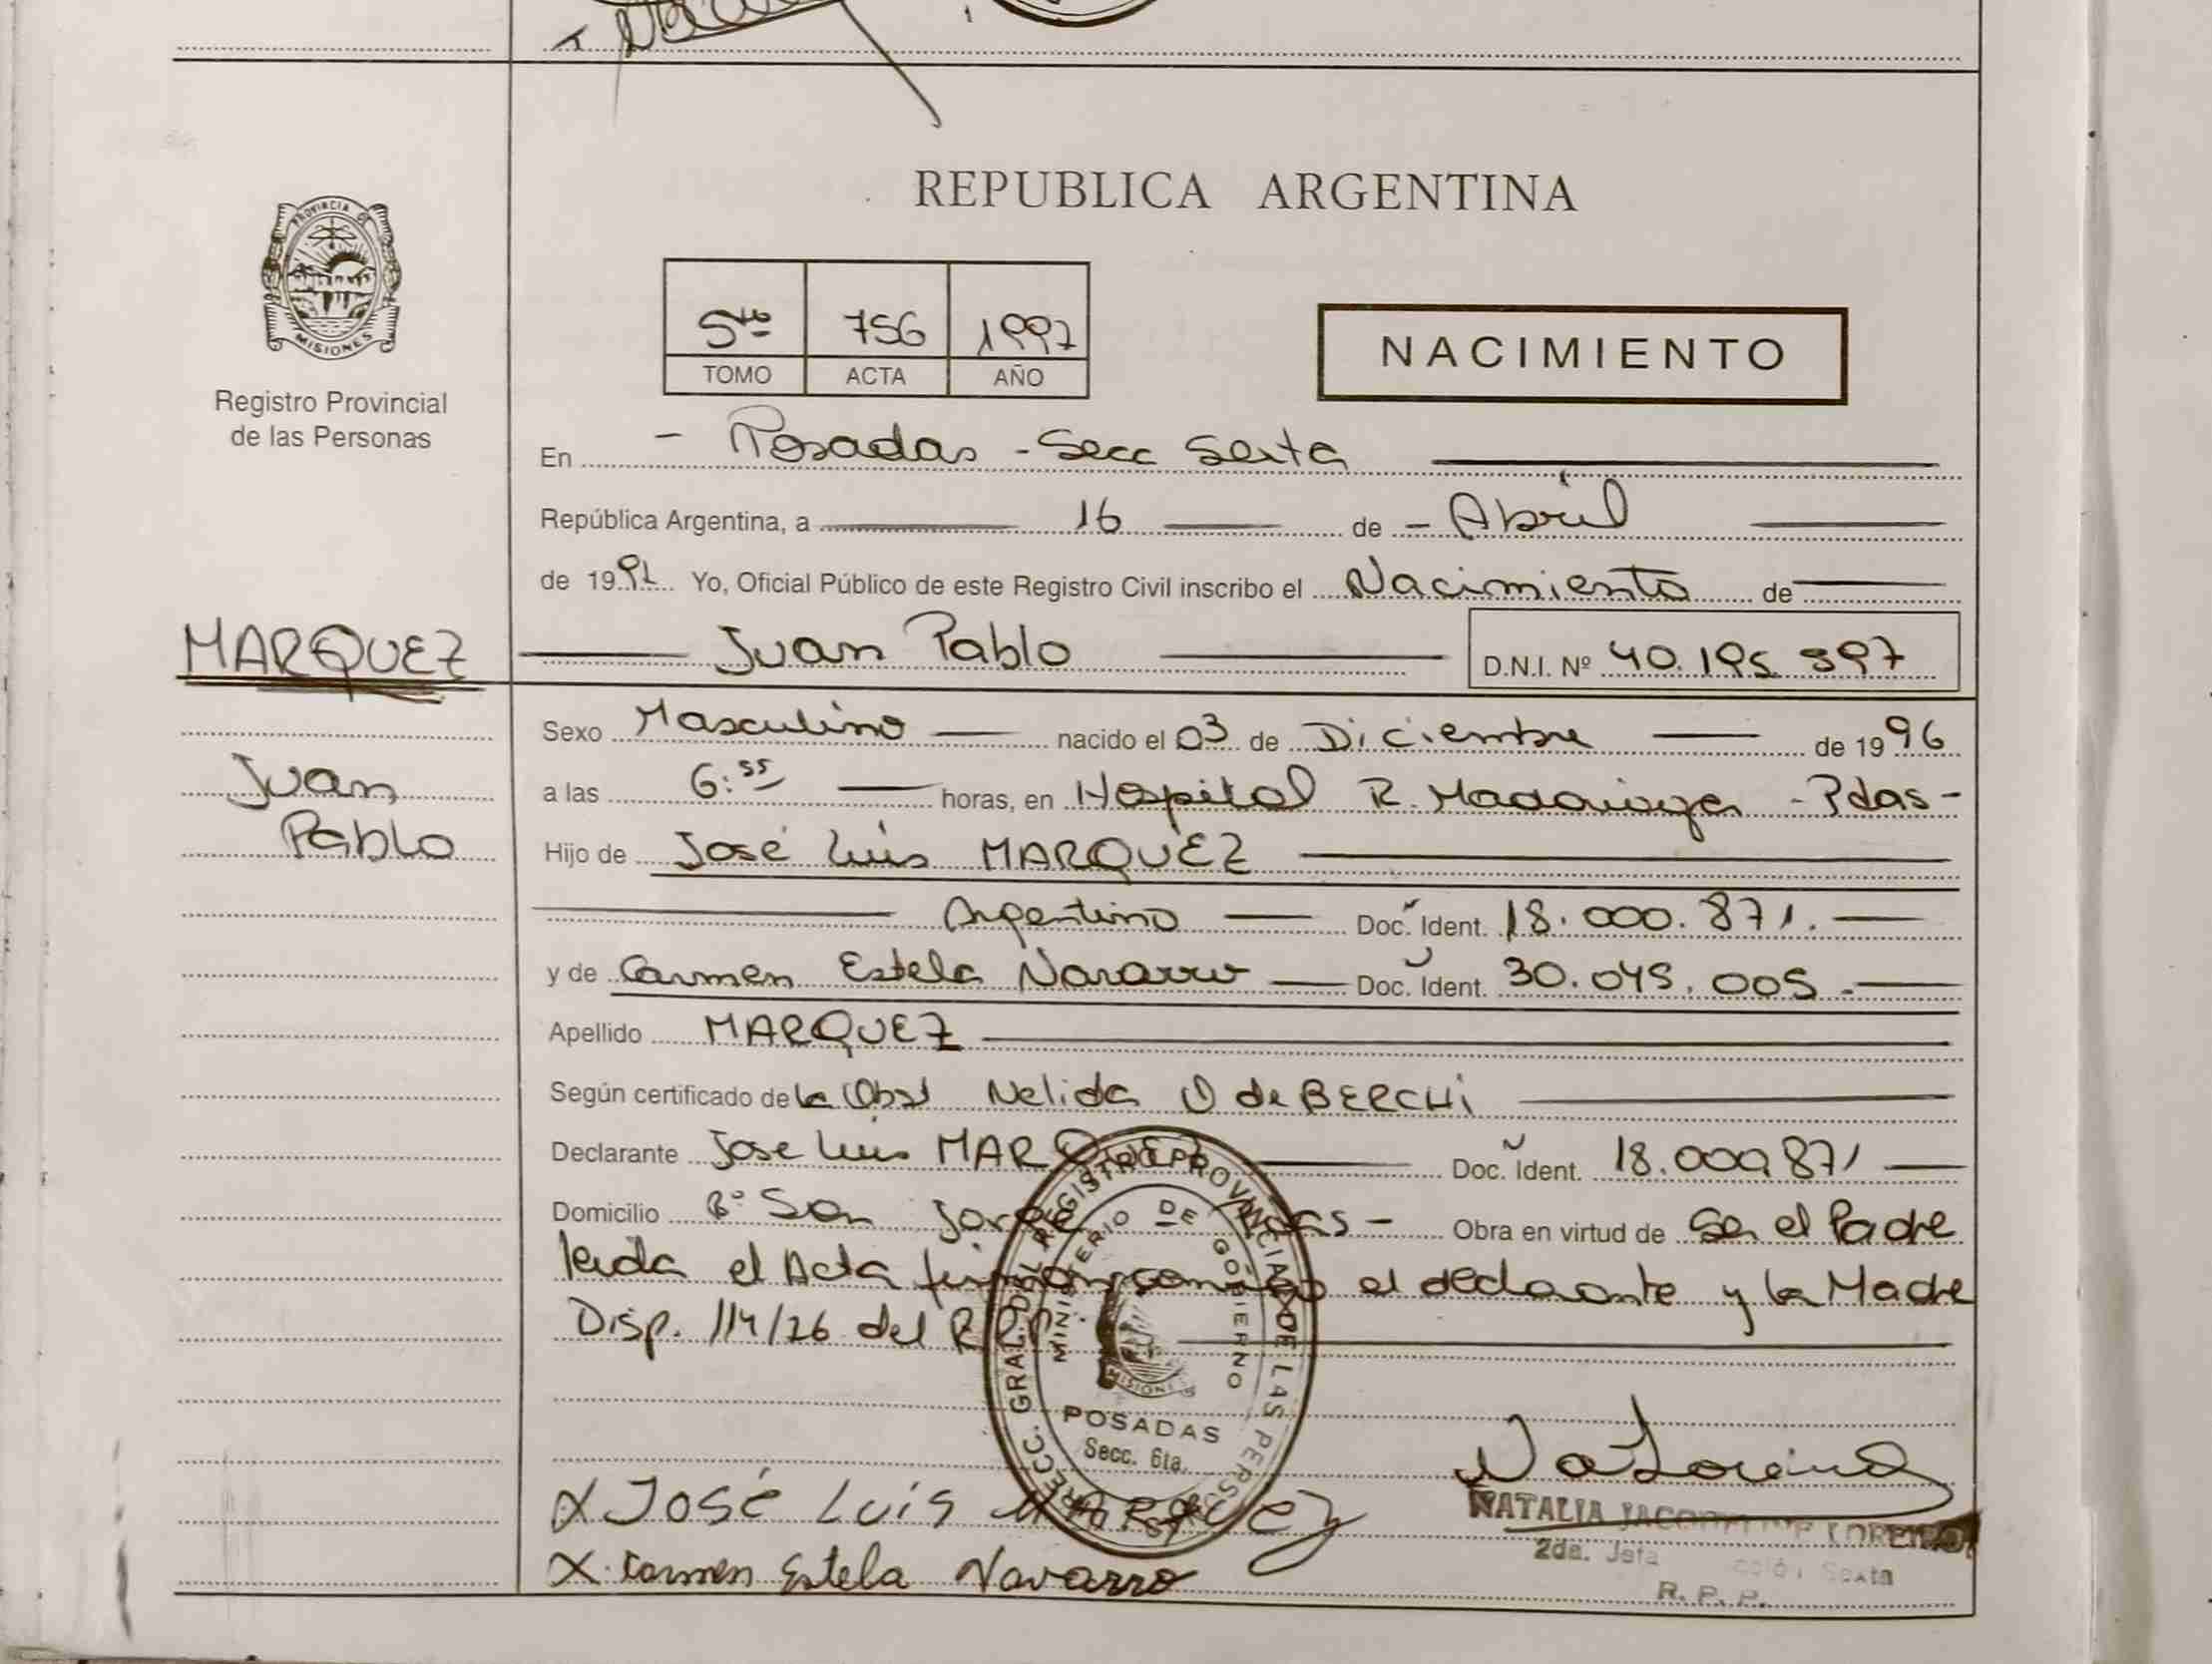 REPUBLICA ARGENTINA
PROVINCIA DE
MISIONES
Registro Provincial
de las Personas
5to 756 1997
TOMO ACTA AÑO
NACIMIENTO
En - Posadas - Secc Sexta
República Argentina, a 16 de - Abril
de 1997 Yo, Oficial Público de este Registro Civil inscribo el Nacimiento de
MARQUEZ
Juan Pablo D.N.I. Nº 40.195.397
Sexo Masculino nacido el 03 de Diciembre de 1996
Juan
Pablo
a las 6:55 horas, en Hospital R. Madariaga - Pdas -
Hijo de José Luis MARQUEZ
Argentino Doc. Ident. 18.000.871.
y de Carmen Estela Navarro Doc. Ident. 30.045.005.-
Apellido MARQUEZ
Según certificado de la Obst Nelida O de BERCHi
Declarante Jose Luis MARQUEZ Doc. Ident. 18.000.871
Domicilio Bº San Jorge Pdas - Obra en virtud de Ser el Padre
leida el Acta firman conmigo el declarante y la Madre
Disp. 114/26 del R.P.P.
DIRECC. GRAL. DEL REGISTRO PROVINCIAL DE LAS PERSONAS
MINISTERIO DE GOBIERNO
MISIONES
POSADAS
Secc. 6ta.
X José Luis Marquez
X Carmen Estela Navarro
NATALIA LOREIRO
2da. Jefa Sexta
R. P. P.